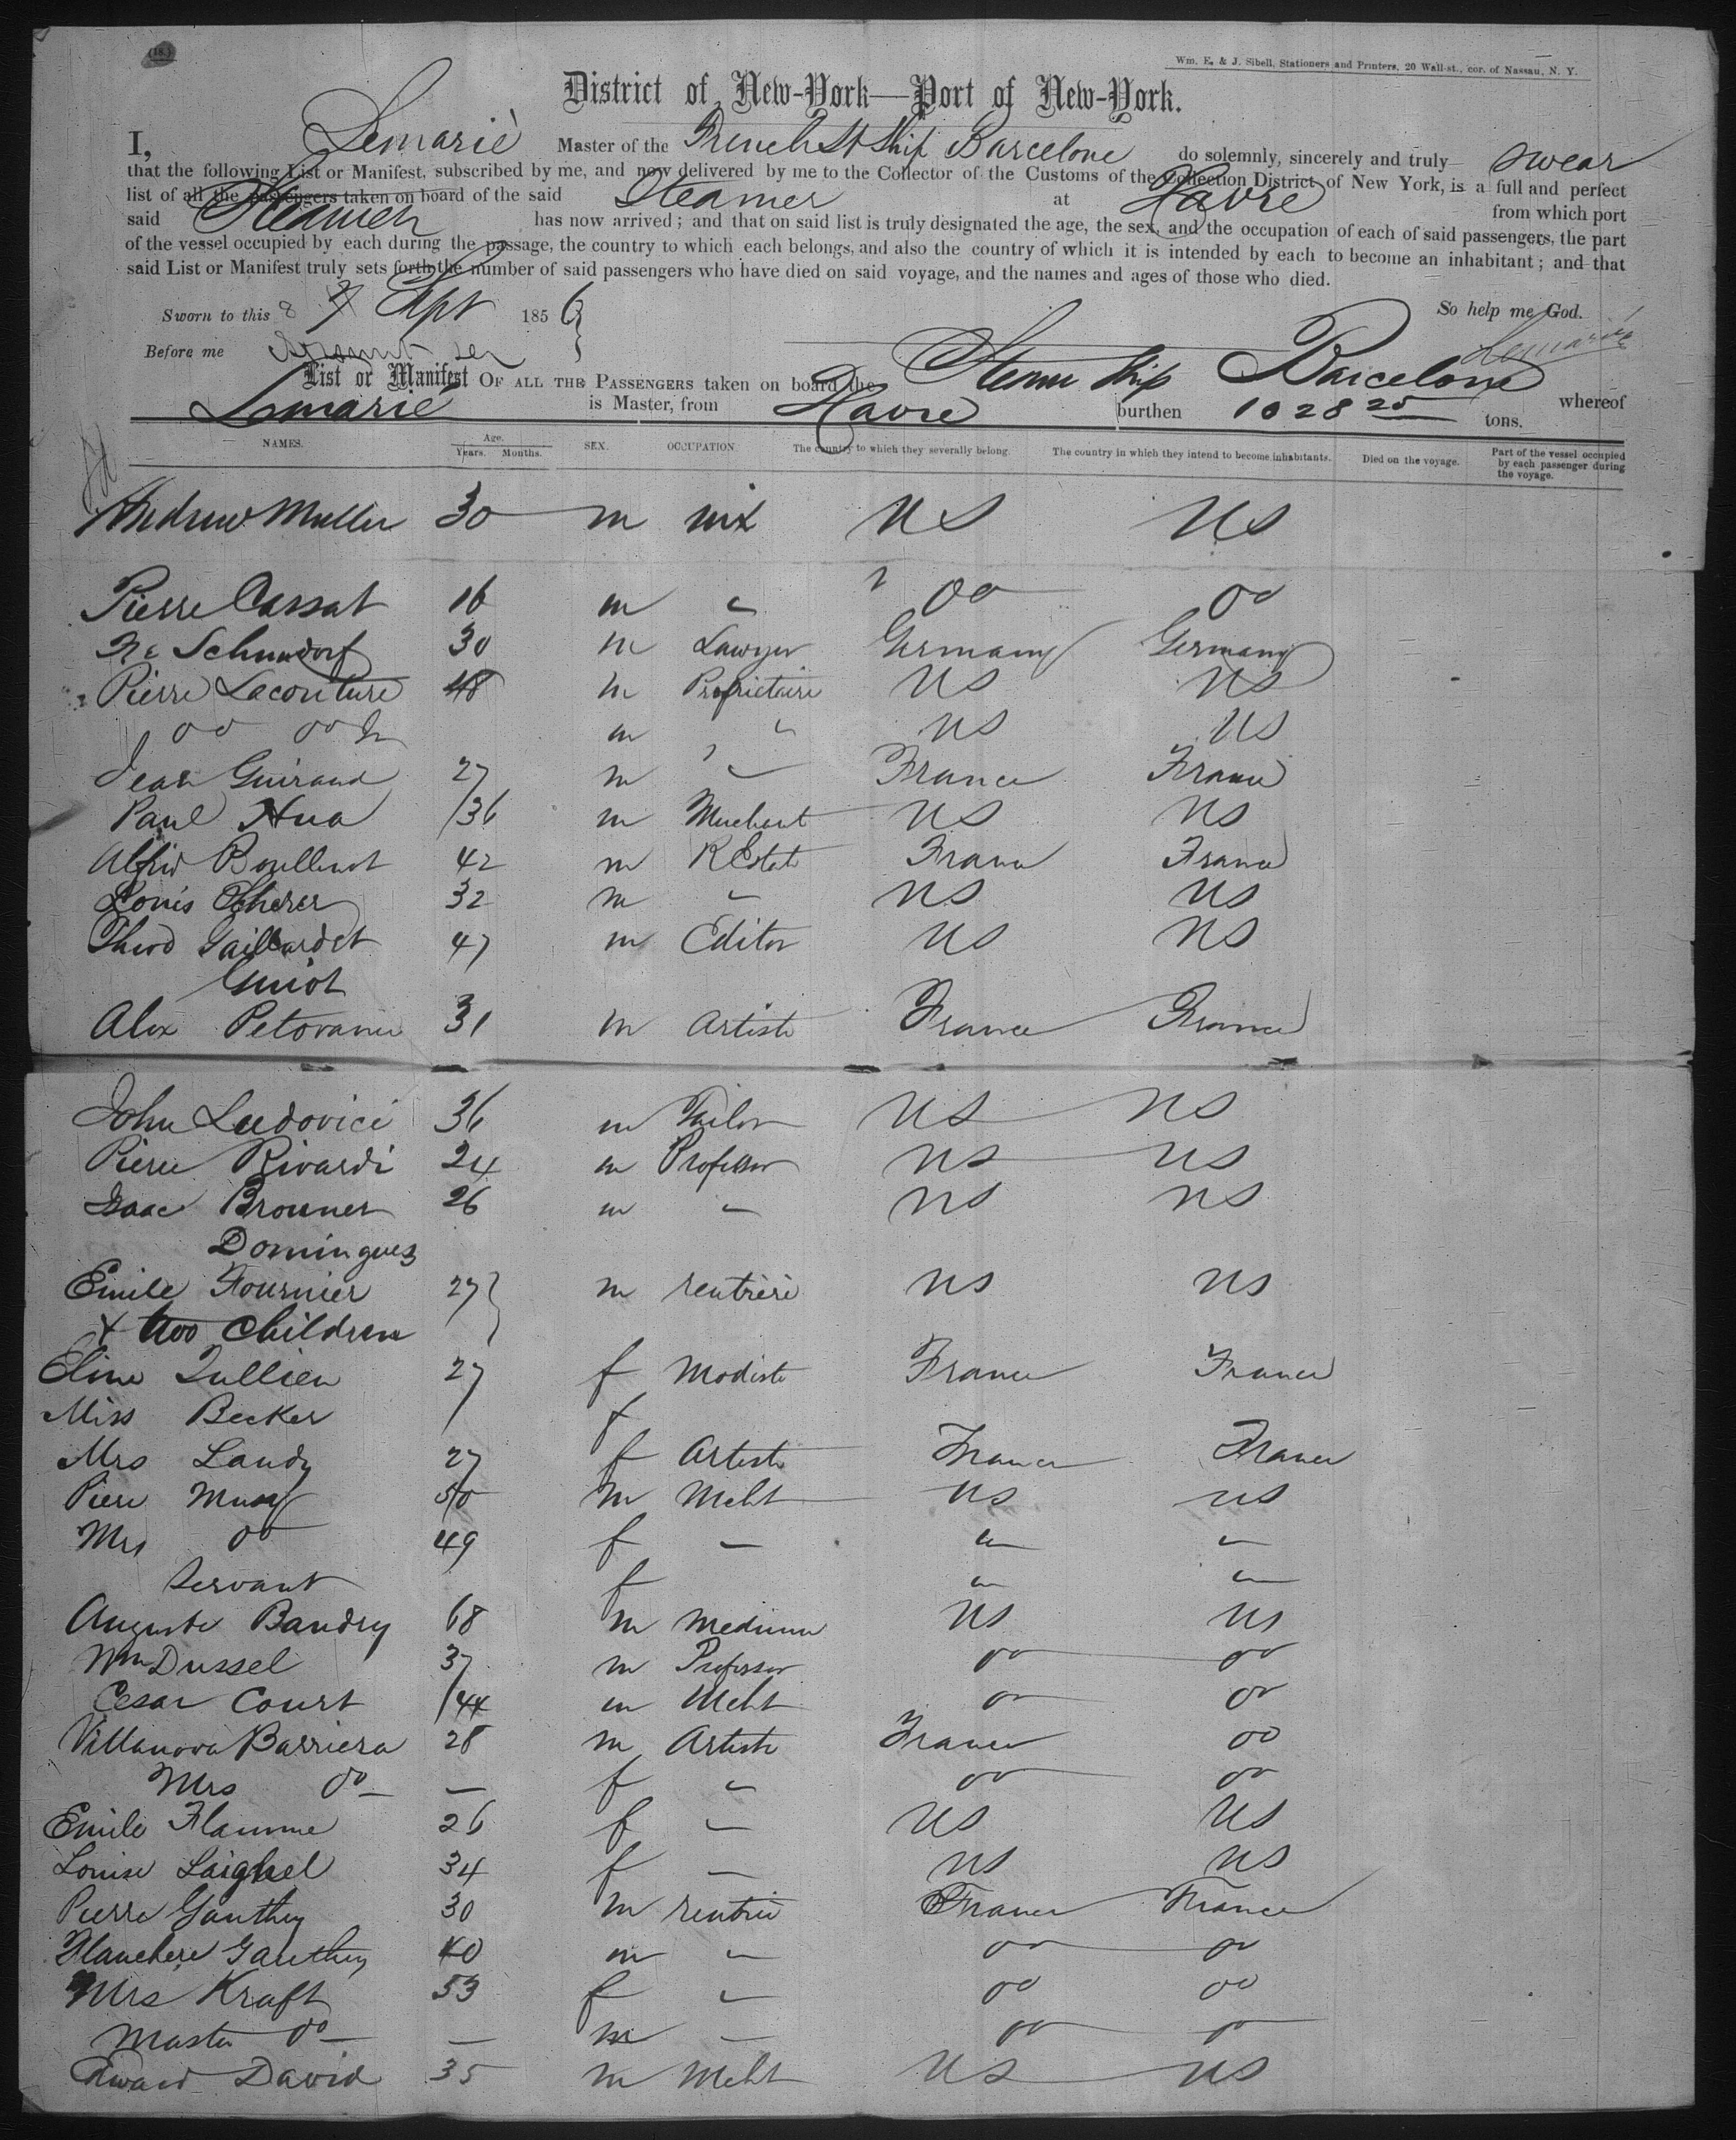 (18.)
Wm. E. & J. Sibell, Stationers and Printers, 20 Wall-st., cor. of Nassau, N. Y.
District of New-York—Port of New-York.
I, Lemarié Master of the French St Ship Barcelone do solemnly, sincerely and truly swear
that the following List or Manifest, subscribed by me, and now delivered by me to the Collector of the Customs of the Collection District of New York, is a full and perfect
list of all the passengers taken on board of the said Steamer at Havre from which port
said Steamer has now arrived; and that on said list is truly designated the age, the sex, and the occupation of each of said passengers, the part
of the vessel occupied by each during the passage, the country to which each belongs, and also the country of which it is intended by each to become an inhabitant; and that
said List or Manifest truly sets forth the number of said passengers who have died on said voyage, and the names and ages of those who died.
So help me God.
Sworn to this 8 Sept 1856
Lemarié
Before me
List or Manifest OF ALL THE PASSENGERS taken on board the Steam Ship Barcelone whereof
Lemarié is Master, from Havre burthen 1028 25 tons.
NAMES. Age. Years. Months. SEX. OCCUPATION. The country to which they severally belong. The country in which they intend to become inhabitants. Died on the voyage. Part of the vessel occupied by each passenger during the voyage.
Andrew Muller 30 m nix US US
Pierre Cassat 16 m " do do
30 m Lawyer Germany Germany
Pierre Lacouture 48 m Proprietaire US US
do do Jr m " US US
Jean Guiraud 27 m " France France
Paul Hua 36 m Merchant US US
Alfrid 42 m R Estate France France
Louis Scherer 32 m " US US
Theod Gaillardet 47 m Editor US US
Guiot
Alex Petovanie 31 m Artiste France France
John Ludovici 36 m Tailor US US
Pierre Rivardi 24 m Professor US US
Isaac Brouner 26 m " US US
Domingues
Emile Fournier 27 m rentiere US US
& two Children
Eline Jullien 27 f Modiste France France
Miss Becker f
Mrs Landy 27 f Artiste France France
Piere 50 m Mcht US US
Mrs do 49 f " " "
Servant f " "
Auguste Baudry 68 m US US
Wm Dussel 37 m Professor do do
Cesar Court 44 m Mcht do do
Villanova Barriera 28 m Artiste France do
Mrs do — f " do do
Emile Flamme 26 f " US US
Louise Laighel 34 f " US US
Pierre Gauthey 30 m rentier France France
Flanchere Gauthey 40 m " do do
Mrs Kraft 53 f " do do
Master do — m " do do
Edward David 35 m Mcht US US